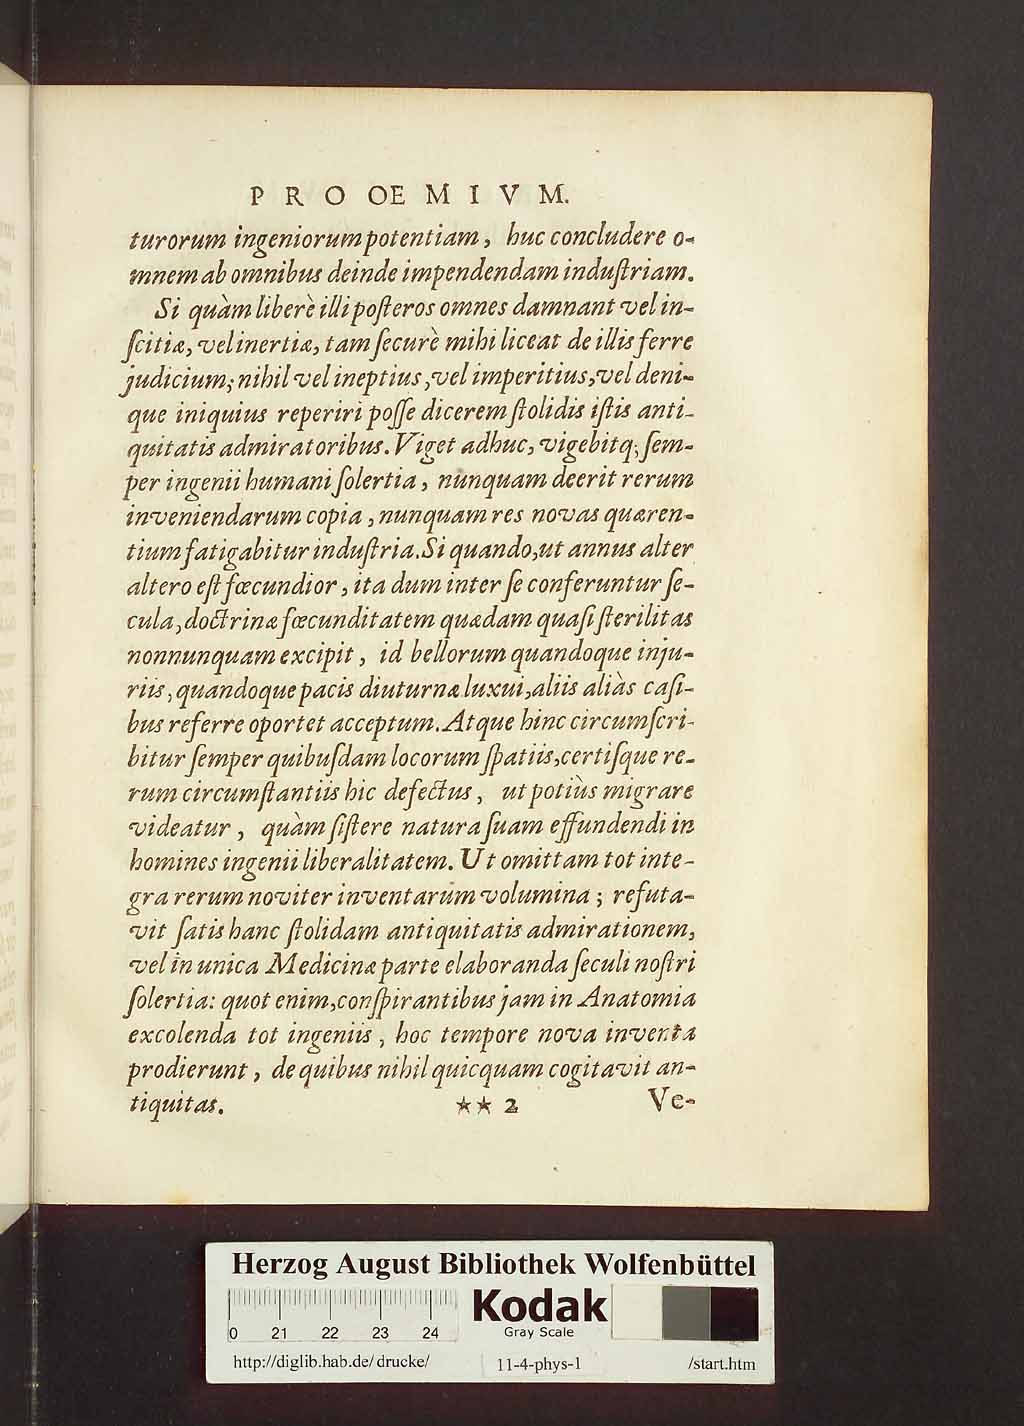 PROOEMIVM.
turorum ingeniorum potentiam, huc concludere o-
mnem ab omnibus deinde impendendam induſtriam.
Si quàm liberè illi poſteros omnes damnant vel in-
ſcitiæ, vel inertiæ, tam ſecurè mihi liceat de illis ferre
judicium; nihil vel ineptius, vel imperitius, vel deni-
que iniquius reperiri poſſe dicerem ſtolidis iſtis anti-
quitatis admiratoribus. Viget adhuc, vigebitq; ſem-
per ingenii humani ſolertia, nunquam deerit rerum
inveniendarum copia, nunquam res novas quæren-
tium fatigabitur induſtria. Si quando, ut annus alter
altero eſt fœcundior, ita dum inter ſe conferuntur ſe-
cula, doctrinæ fœcunditatem quædam quaſi ſterilitas
nonnunquam excipit, id bellorum quandoque inju-
riis, quandoque pacis diuturnæ luxui, aliis aliàs caſi-
bus referre oportet acceptum. Atque hinc circumſcri-
bitur ſemper quibuſdam locorum ſpatiis, certiſque re-
rum circumſtantiis hic defectus, ut potiùs migrare
videatur, quàm ſiſtere natura ſuam effundendi in
homines ingenii liberalitatem. Ut omittam tot inte-
gra rerum noviter inventarum volumina; refuta-
vit ſatis hanc ſtolidam antiquitatis admirationem,
vel in unica Medicinæ parte elaboranda ſeculi noſtri
ſolertia: quot enim, conſpirantibus jam in Anatomia
excolenda tot ingeniis, hoc tempore nova inventa
prodierunt, de quibus nihil quicquam cogitavit an-
tiquitas. ★★ 2 Ve-
Herzog August Bibliothek Wolfenbüttel
0 21 22 23 24
Kodak
Gray Scale
http://diglib.hab.de/drucke/ 11-4-phys-1 /start.htm